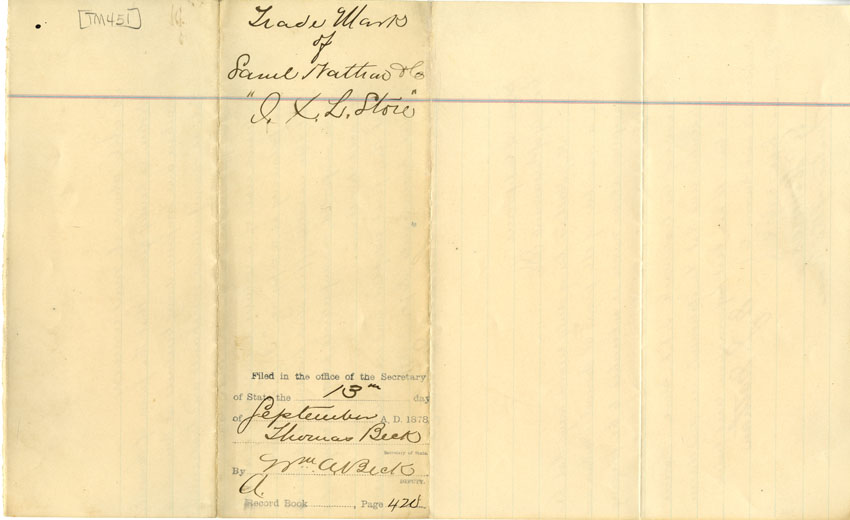 [TM451]
Trade Mark
of
Saml Nathan & Co
"I. X. L. Store"
Filed in the office of the Secretary
of State the 13th day
of September A. D. 1878
Thomas Beck
Secretary of State.
By Wm. A. Beck
DEPUTY.
A.
Record Book , Page 428